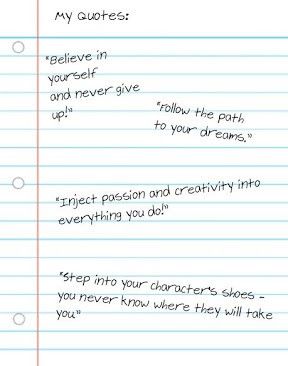 My Quotes:
"Believe in
yourself
and never give
up!"
"Follow the path
to your dreams."
"Inject passion and creativity into
everything you do!"
"Step into your character's shoes -
you never know where they will take
you"